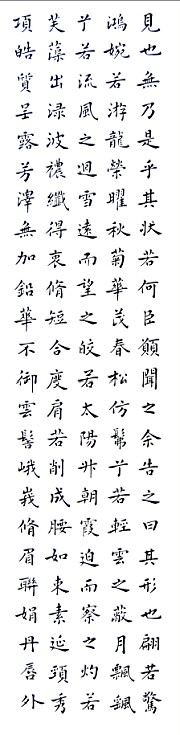 見也無乃是乎其狀若何臣願聞之余告之曰其形也翩若驚
鴻婉若游龍榮曜秋菊華茂春松仿髴兮若輕雲之蔽月飄飖
兮若流風之迴雪遠而望之皎若太陽升朝霞迫而察之灼若
芙蕖出淥波襛纖得衷脩短合度肩若削成腰如束素延頸秀
項皓質呈露芳澤無加鉛華不御雲髻峨峩脩眉聯娟丹脣外